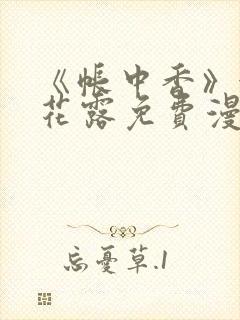 《帐中香》
花露免費漫
忘憂草.1